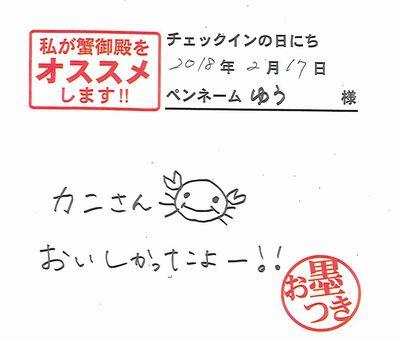 私が蟹御殿を
オススメ
します!!
チェックインの日にち
2018年2月17日
ペンネーム ゆう 様
カニさん
おいしかったよー!!
お墨つき